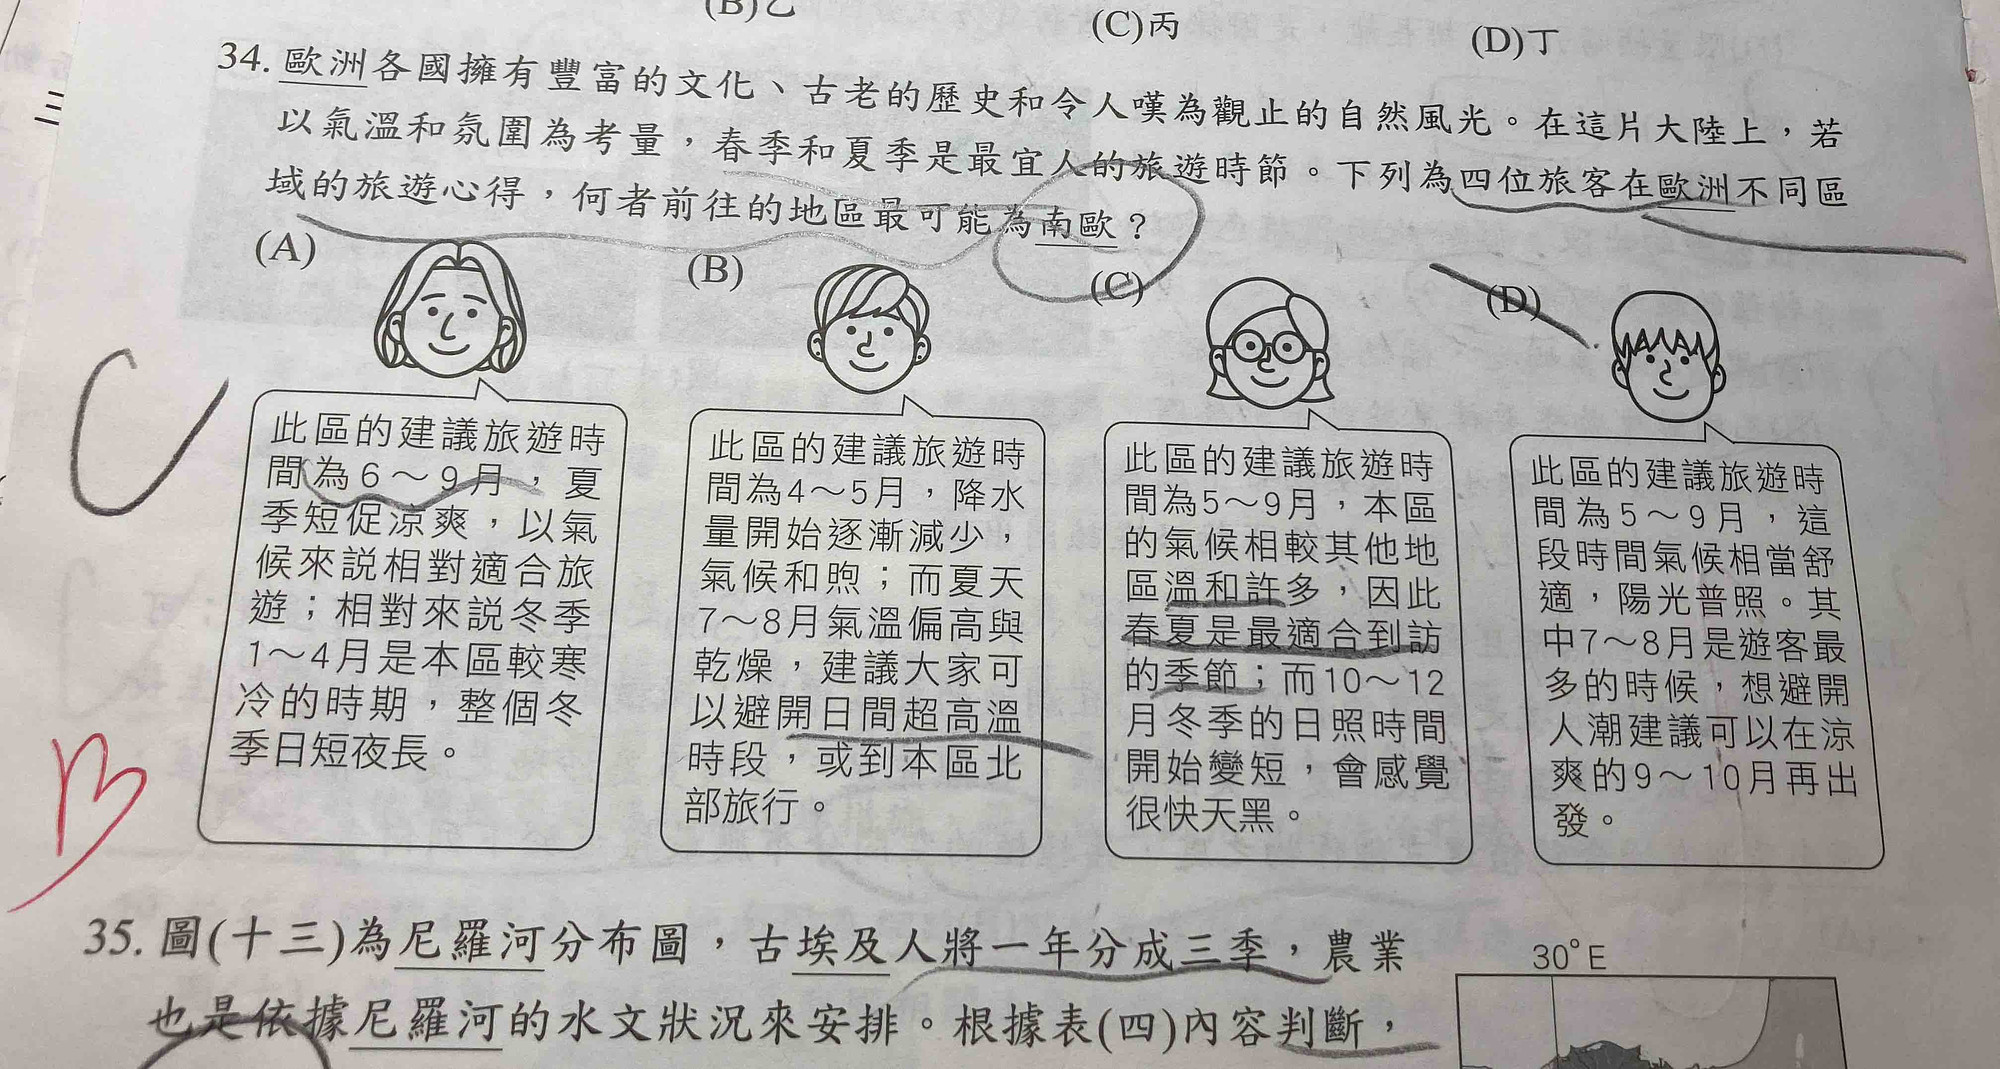 (B)乙
(C)丙
(D)丁
三
34. 歐洲各國擁有豐富的文化、古老的歷史和令人嘆為觀止的自然風光。在這片大陸上,若
以氣溫和氛圍為考量,春季和夏季是最宜人的旅遊時節。下列為四位旅客在歐洲不同區
域的旅遊心得,何者前往的地區最可能為南歐?
(A)
此區的建議旅遊時
間為6～9月,夏
季短促涼爽,以氣
候來說相對適合旅
遊;相對來說冬季
1～4月是本區較寒
冷的時期,整個冬
季日短夜長。
(B)
此區的建議旅遊時
間為4～5月,降水
量開始逐漸減少,
氣候和煦;而夏天
7～8月氣溫偏高與
乾燥,建議大家可
以避開日間超高溫
時段,或到本區北
部旅行。
(C)
此區的建議旅遊時
間為5～9月,本區
的氣候相較其他地
區溫和許多,因此
春夏是最適合到訪
的季節;而10～12
月冬季的日照時間
開始變短,會感覺
很快天黑。
(D)
此區的建議旅遊時
間為5～9月,這
段時間氣候相當舒
適,陽光普照。其
中7～8月是遊客最
多的時候,想避開
人潮建議可以在涼
爽的9～10月再出
發。
C
B
35. 圖(十三)為尼羅河分布圖,古埃及人將一年分成三季,農業
也是依據尼羅河的水文狀況來安排。根據表(四)內容判斷,
30°E